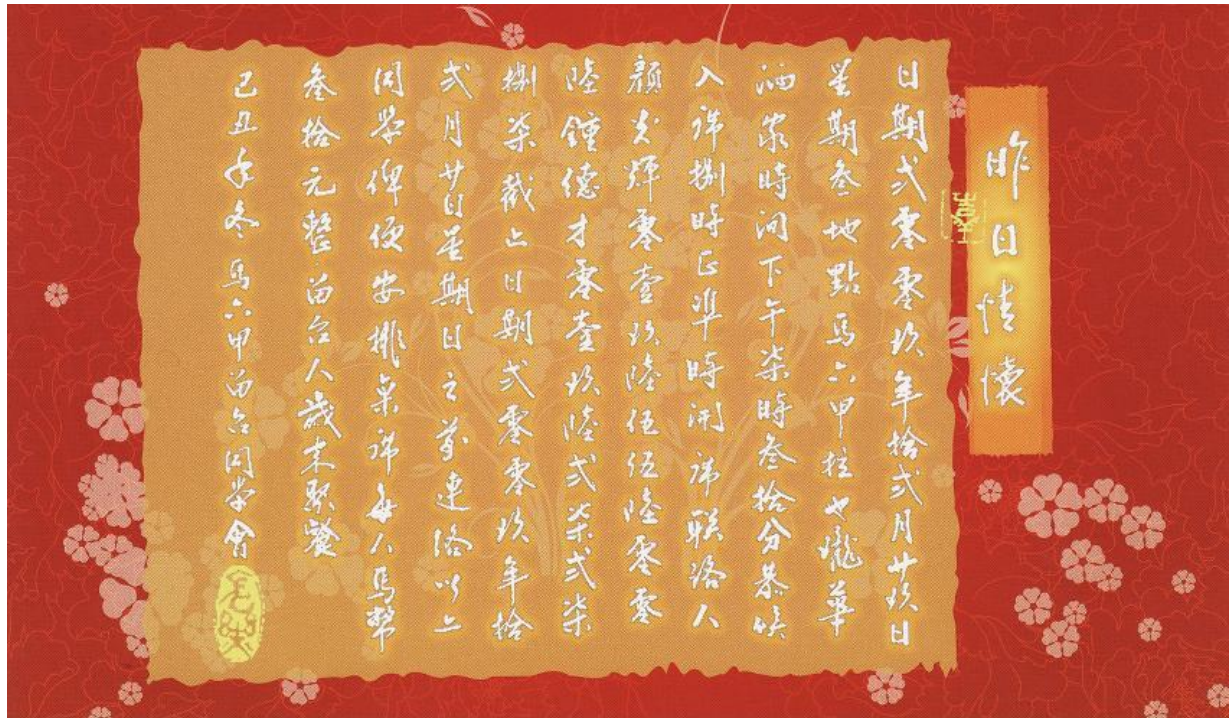 昨日情懷
日期弍零零玖年拾弍月廿玖日
星期叁地點馬六甲桂也瓏華
酒家時间下午柒時叁拾分恭候
入席捌時正準時開席联络人
顏光輝零壹玖陸伍伍陸零零
陸鍾德才零壹玖陸弍柒弍柒
捌柒截止日期弍零零玖年拾
弍月廿日星期日之前連洛以上
同學俾便安排桌席每人馬幣
叁拾元整留台人歲末聚餐
己丑年冬馬六甲留台同學會